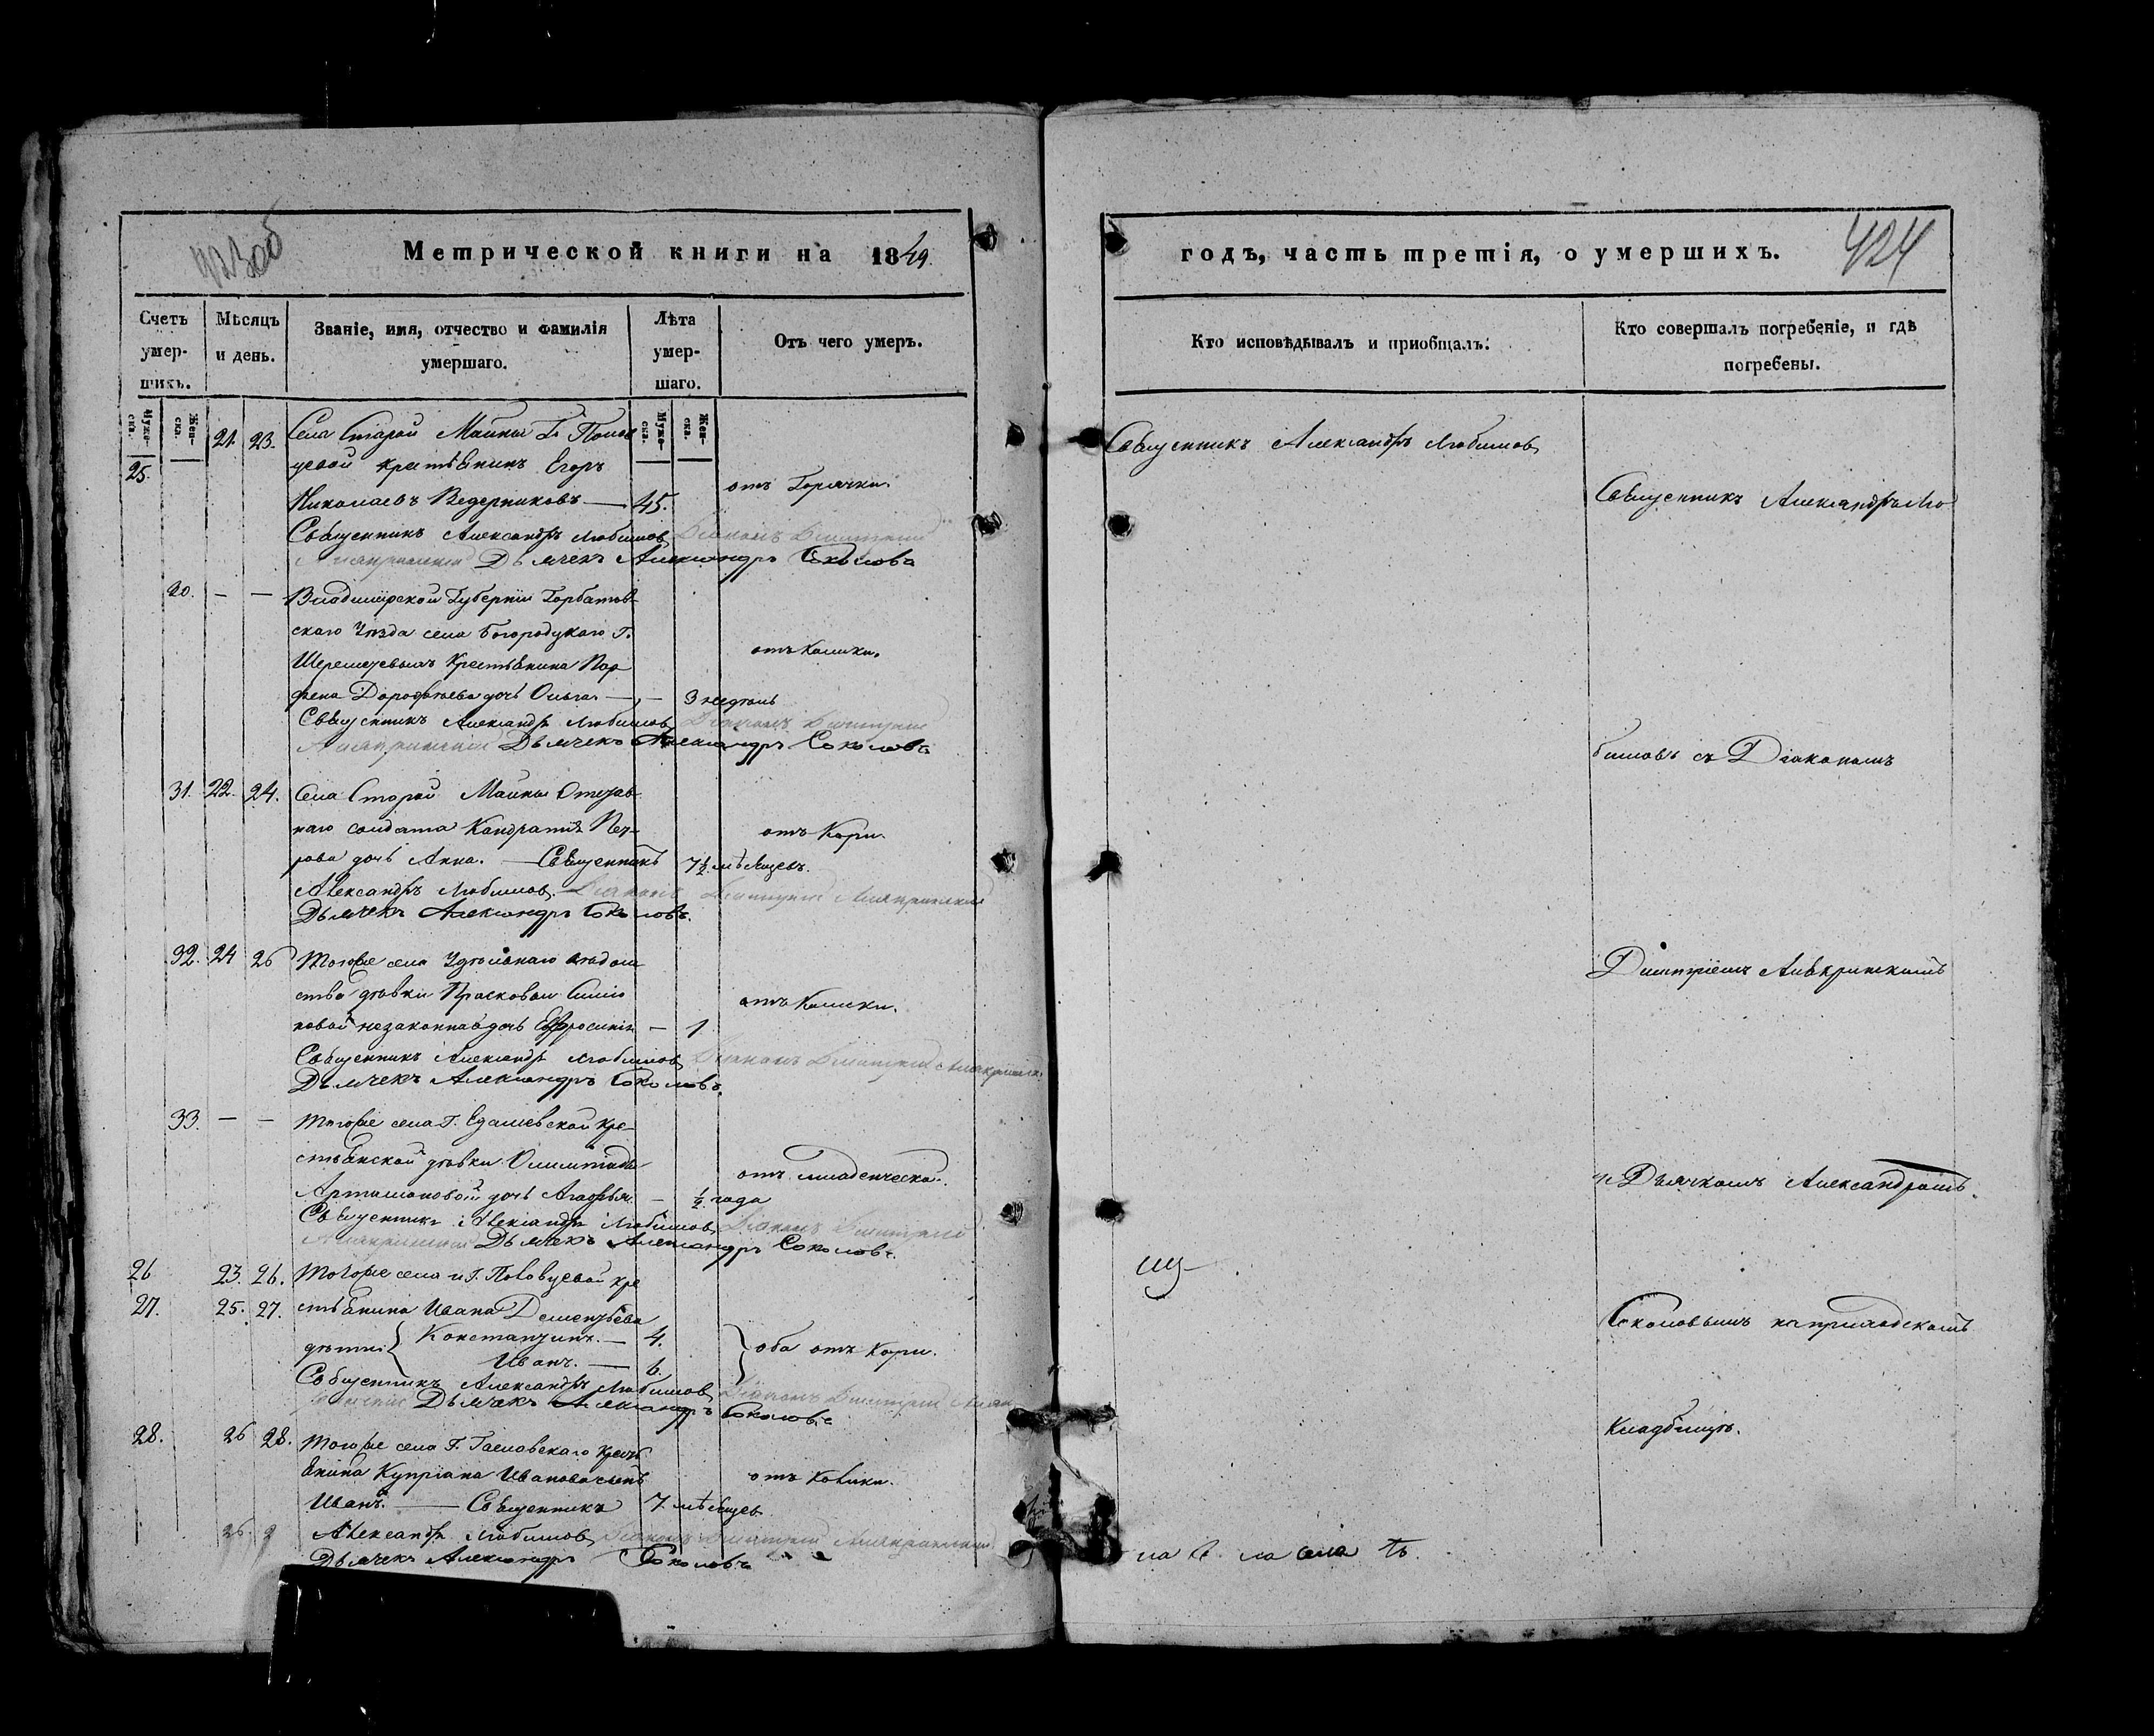 423об
Метрической книги на 1849.
Счетъ умер-шихъ.
Мѣсяцъ и день.
Званіе, имя, отчество и фамилія умершаго.
Лѣта умер-шаго.
Отъ чего умеръ.
Муже-ска.
Жен-ска.
Муже-ска.
Жен-ска.
25. 21. 23. Села Старой Майны Г. Полов
цевой крестьянинъ Егоръ
Николаевъ Ведерниковъ — 45. отъ Горячки.
Священникъ Александръ Любимовъ Діаконъ Димитрій
Дьячекъ Александръ Соколовъ
30. — — Владимірской Губерніи Горбатов-
скаго Уѣзда села Богородцкаго Г.
Шереметевыхъ Крестьянина Пар
фена Дорофѣева дочь Ольга — — 3 недѣль отъ Колики.
Священникъ Александръ Любимовъ Діаконъ Димитрій
Дьячекъ Александръ Соколовъ
31. 22. 24. Села Старой Майны Отстав
наго солдата Кандратія Пет-
рова дочь Анна. — Священникъ 7½ мѣсяцевъ. отъ Кори.
Александръ Любимовъ. Діаконъ Димитрій
Дьячекъ Александръ Соколовъ.
32. 24 26 Тогоже села Удѣльнаго вѣдом
ства дѣвки Прасковьи Симо
новой незаконная дочь Евфросинія — 1 отъ Колики.
Священникъ Александръ Любимовъ Діаконъ Димитрій
Дьячекъ Александръ Соколовъ.
33. — — Тогоже села Г. кре-
стьянской дѣвки Олимпіады
Артамоновой дочь Агафья. — ½ года отъ младенческой.
Священникъ Александръ Любимовъ Діаконъ Димитрій
Дьячекъ Александръ Соколовъ.
26 23. 26. Тогоже села и Г. Половцевой кре
27. 25. 27. стьянина Ивана Дементьева
дѣти { Константинъ. — 4.
Иванъ. — 6. } оба отъ Кори.
Священникъ Александръ Любимовъ Діаконъ Димитрій
Дьячекъ Александръ Соколовъ
28. 26 28. Тогоже села Г. кресть
янина Купріана Иванова сынъ
Иванъ. — Священникъ 7. мѣсяцев отъ Колики.
Александръ Любимовъ Діаконъ Димитрій
Дьячекъ Александръ Соколовъ
годъ, часть третія, о умершихъ.
424
Кто исповѣдывалъ и пріобщалъ.
Кто совершалъ погребеніе, и гдѣ погребены.
Священникъ Александръ Любимовъ
Священникъ Александръ Лю
бимовъ съ Діакономъ
Димитріемъ
и Дьячкомъ Александромъ
Соколовымъ на приходскомъ
Кладбищѣ.